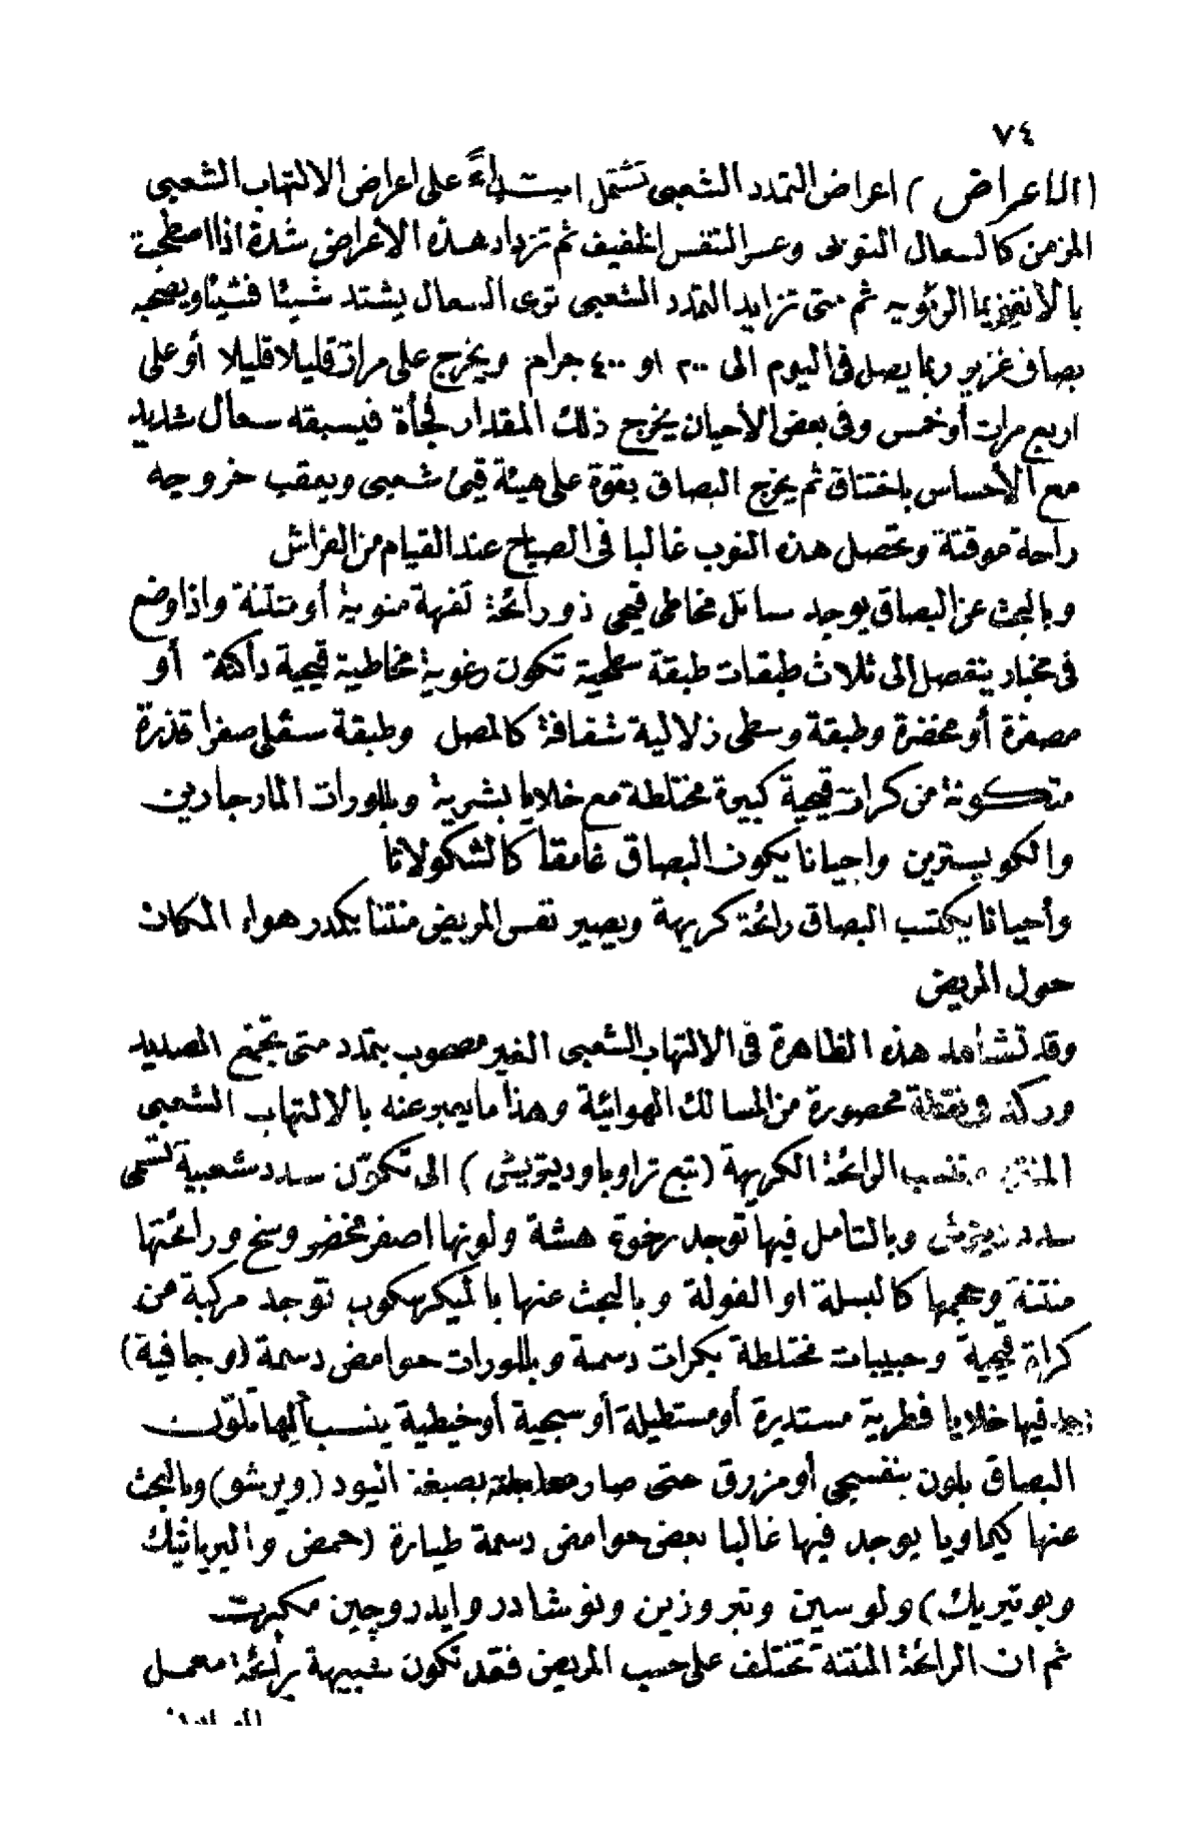 ٧٤
(الاعراض) اعراض التمدد الشعبى تشتمل ابتداءً على اعراض الالتهاب الشعبى
المزمن كالسعال النوبى وعسر التنفس الخفيف ثم تزداد هذه الأعراض شدة اذا اصطحبت
بالأنفزيما الرئويه ثم متى تزايد التمدد الشعبى ترى السعال يشتد شيئا فشيئا ويصحبه
بصاق غزير ربما يصل فى اليوم الى ٣٠٠ او ٤٠٠ جرام ويخرج على مرات قليلا قليلا أو على
اربع مرات أو خمس وفى بعض الأحيان يخرج ذلك المقدار فجأة فيسبقه سعال شديد
مع الأحساس باختناق ثم يخرج البصاق بقوة على هيئة قيئ شعبى ويعقب خروجه
راحة موقتة وتحصل هذه النوب غالبا فى الصباح عند القيام من الفراش
وبالبحث عن البصاق يوجد سائل مخاطى قيحى ذو رائحة تفهة منوية أو منتنة واذا وضع
فى مخبار ينفصل الى ثلاث طبقات طبقة سطحية تكون رغوية مخاطية قيحية داكنة أو
مصفرة أو مخضرة وطبقة وسطى زلالية شفافة كالمصل وطبقة سفلى صفرا قذرة
متكونة من كرات قيحية كبيرة مختلطة مع خلايا بشرية وبللورات المارجارين
والكوليسترين واحيانا يكون البصاق غامقا كالشكولاتا
وأحيانا يكتسب البصاق رائحة كريهة ويصير نفس المريض منتنا يكدر هواء المكان
حول المريض
وقد تشاهد هذه الظاهرة فى الالتهاب الشعبى الغير مصحوب بتمدد متى تجمع الصديد
وركد فى نقطة محصورة من المسالك الهوائية وهذا ما يعبر عنه بالالتهاب الشعبى
المنتن وتنسب الرائحة الكريهة (تبع تراوبا وديتريش) الى تكوّن سدد شعبية تسمى
سدد ديتريش وبالتأمل فيها توجد رخوة هشة ولونها اصفر مخضر وسخ ورائحتها
منتنة وحجمها كالبسلة او الفولة وبالبحث عنها بالميكرسكوب توجد مركبة من
كرات قيحية وحبيبات مختلطة بكرات دسمة وبللورات حوامض دسمة (وجافية)
وجد فيها خلايا فطرية مستديرة أو مستطيلة أو سبحية أو خيطية ينسب اليها تلوّن
البصاق بلون بنفسجى أو مزرق متى صار معاملته بصبغة اليود (ويرشو) وبالبحث
عنها كيماويا يوجد فيها غالبا بعض حوامض دسمة طيارة (حمض والبريانيك
وبوتيريك) ولوسين وتيروزين ونوشادر وايدروچين مكبرت
ثم ان الرائحة المنتنة تختلف على حسب المريض فقد تكون شبيهة برائحة معمل